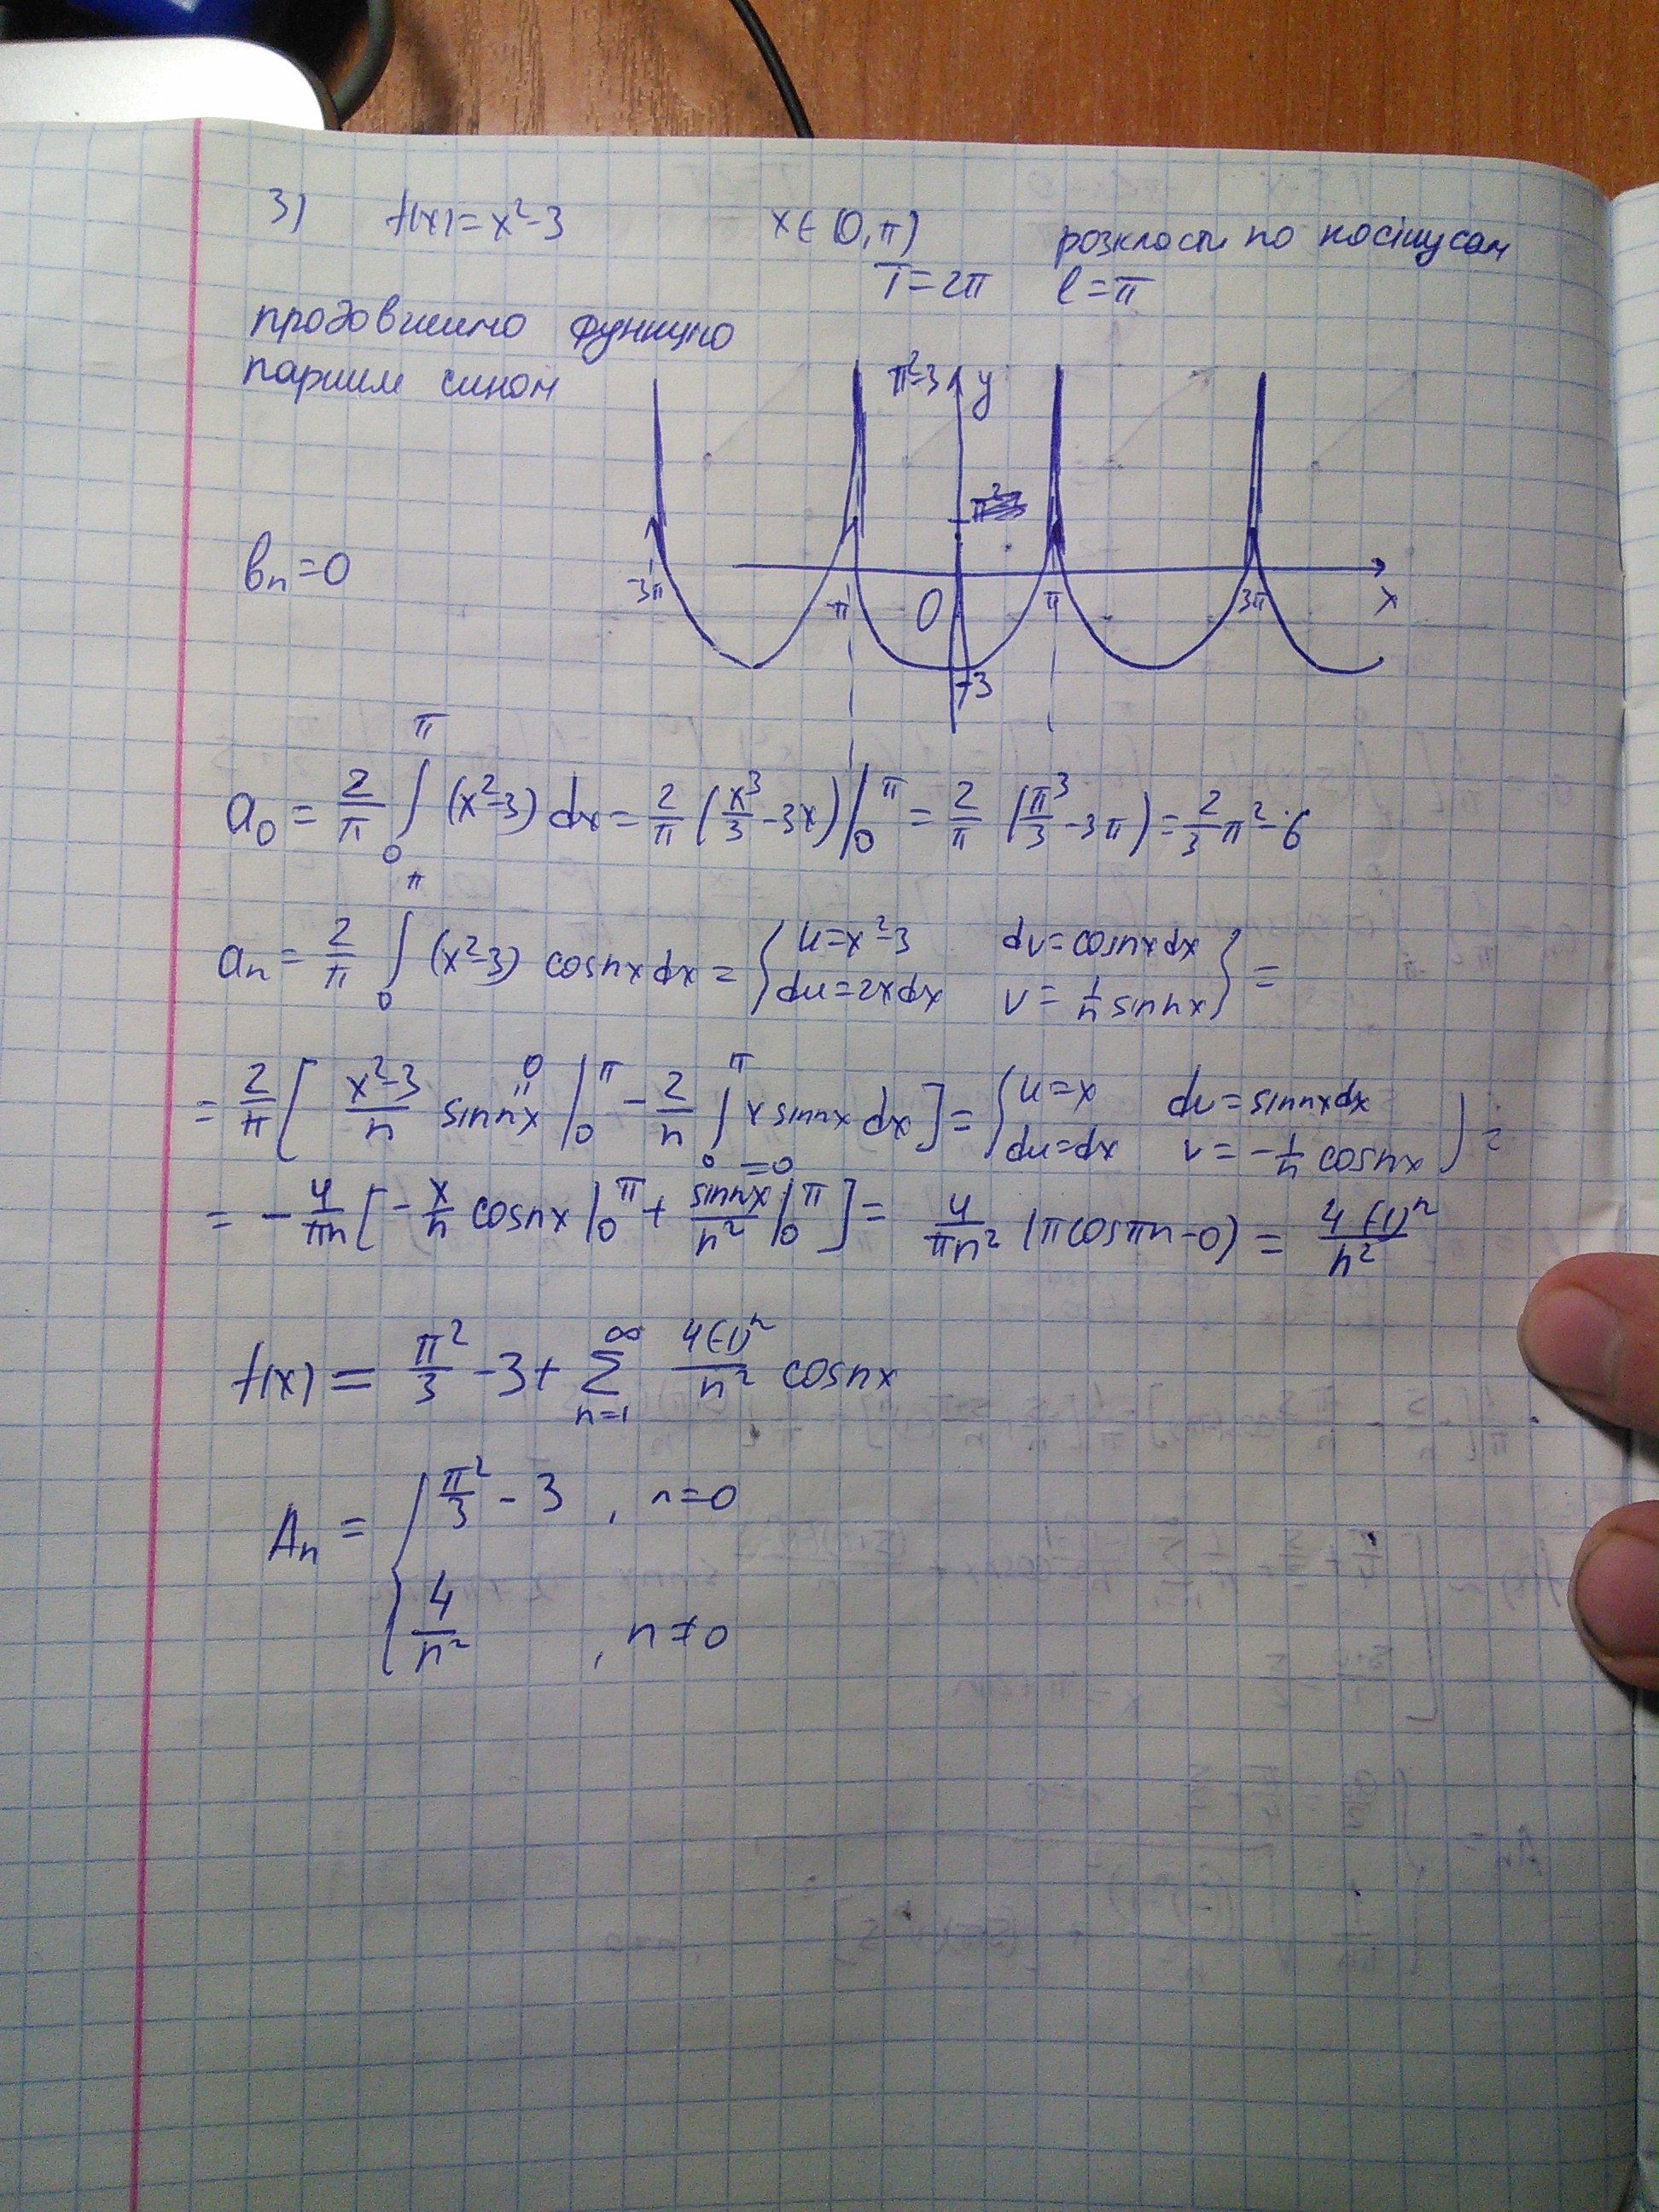 3) f(x)=x²-3 x∈(0,π) розкласти по косінусам
T=2π l=π
продовжимо функцію
парним чином
π²-3 y
bₙ=0
-3π -π 0 π 3π x
-3
a₀ = 2/π ∫₀^π (x²-3) dx = 2/π (x³/3 - 3x) |₀^π = 2/π (π³/3 - 3π) = 2/3 π² - 6
aₙ = 2/π ∫₀^π (x²-3) cosnx dx = { u=x²-3 dv=cosnxdx du=2xdx v=1/n sinnx } =
= 2/π [ (x²-3)/n sinnx |₀^π (=0) - 2/n ∫₀^π x sinnx dx ] = { u=x dv=sinnxdx du=dx v=-1/n cosnx } =
= -4/(πn) [ -x/n cosnx |₀^π + sinnx/n² |₀^π (=0) ] = 4/(πn²) (πcosπn-0) = 4(-1)ⁿ/n²
f(x) = π²/3 - 3 + ∑ₙ₌₁^∞ 4(-1)ⁿ/n² cosnx
Aₙ = { π²/3 - 3 , n=0
4/n² , n≠0